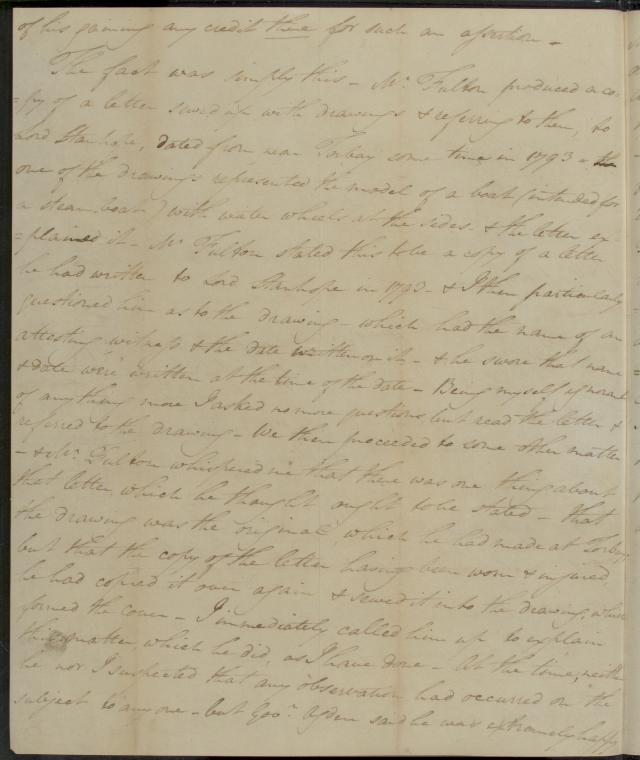 of his gaining any credit there for such an assertion -
The fact was simply this - Mr. Fulton produced a co-
=py of a letter sewed up with drawings & referring to them, to
Lord Stanhope, dated from near Torbay some time in 1793 - the
one of the drawings represented the model of a boat (intended for
a steam-boat) with water wheels at the sides. & the letter ex-
=plained it - Mr. Fulton stated this to be a copy of a letter
he had written to Lord Stanhope in 1793 - & I then particularly
questioned him as to the drawing - which had the name of an
attesting witness & the date written on it - & he swore that name
& date were written at the time of the date - Being myself ignorant
of any thing more I asked no more questions but read the letter &
referred to the drawing - We then proceeded to some other matter
- & Mr. Fulton whispered me that there was one thing about
that letter which he thought ought to be stated - that
the drawing was the original which he had made at Torbay
but that the copy of the letter having been worn & injured,
he had copied it over again & sewed it into the drawing, which
formed the cover - I immediately called him up to explain
this matter, which he did, as I have done - At the time, neither
he nor I suspected that any observation had occurred on the
subject to any one - but Govr. Ogden said he was extremely happy